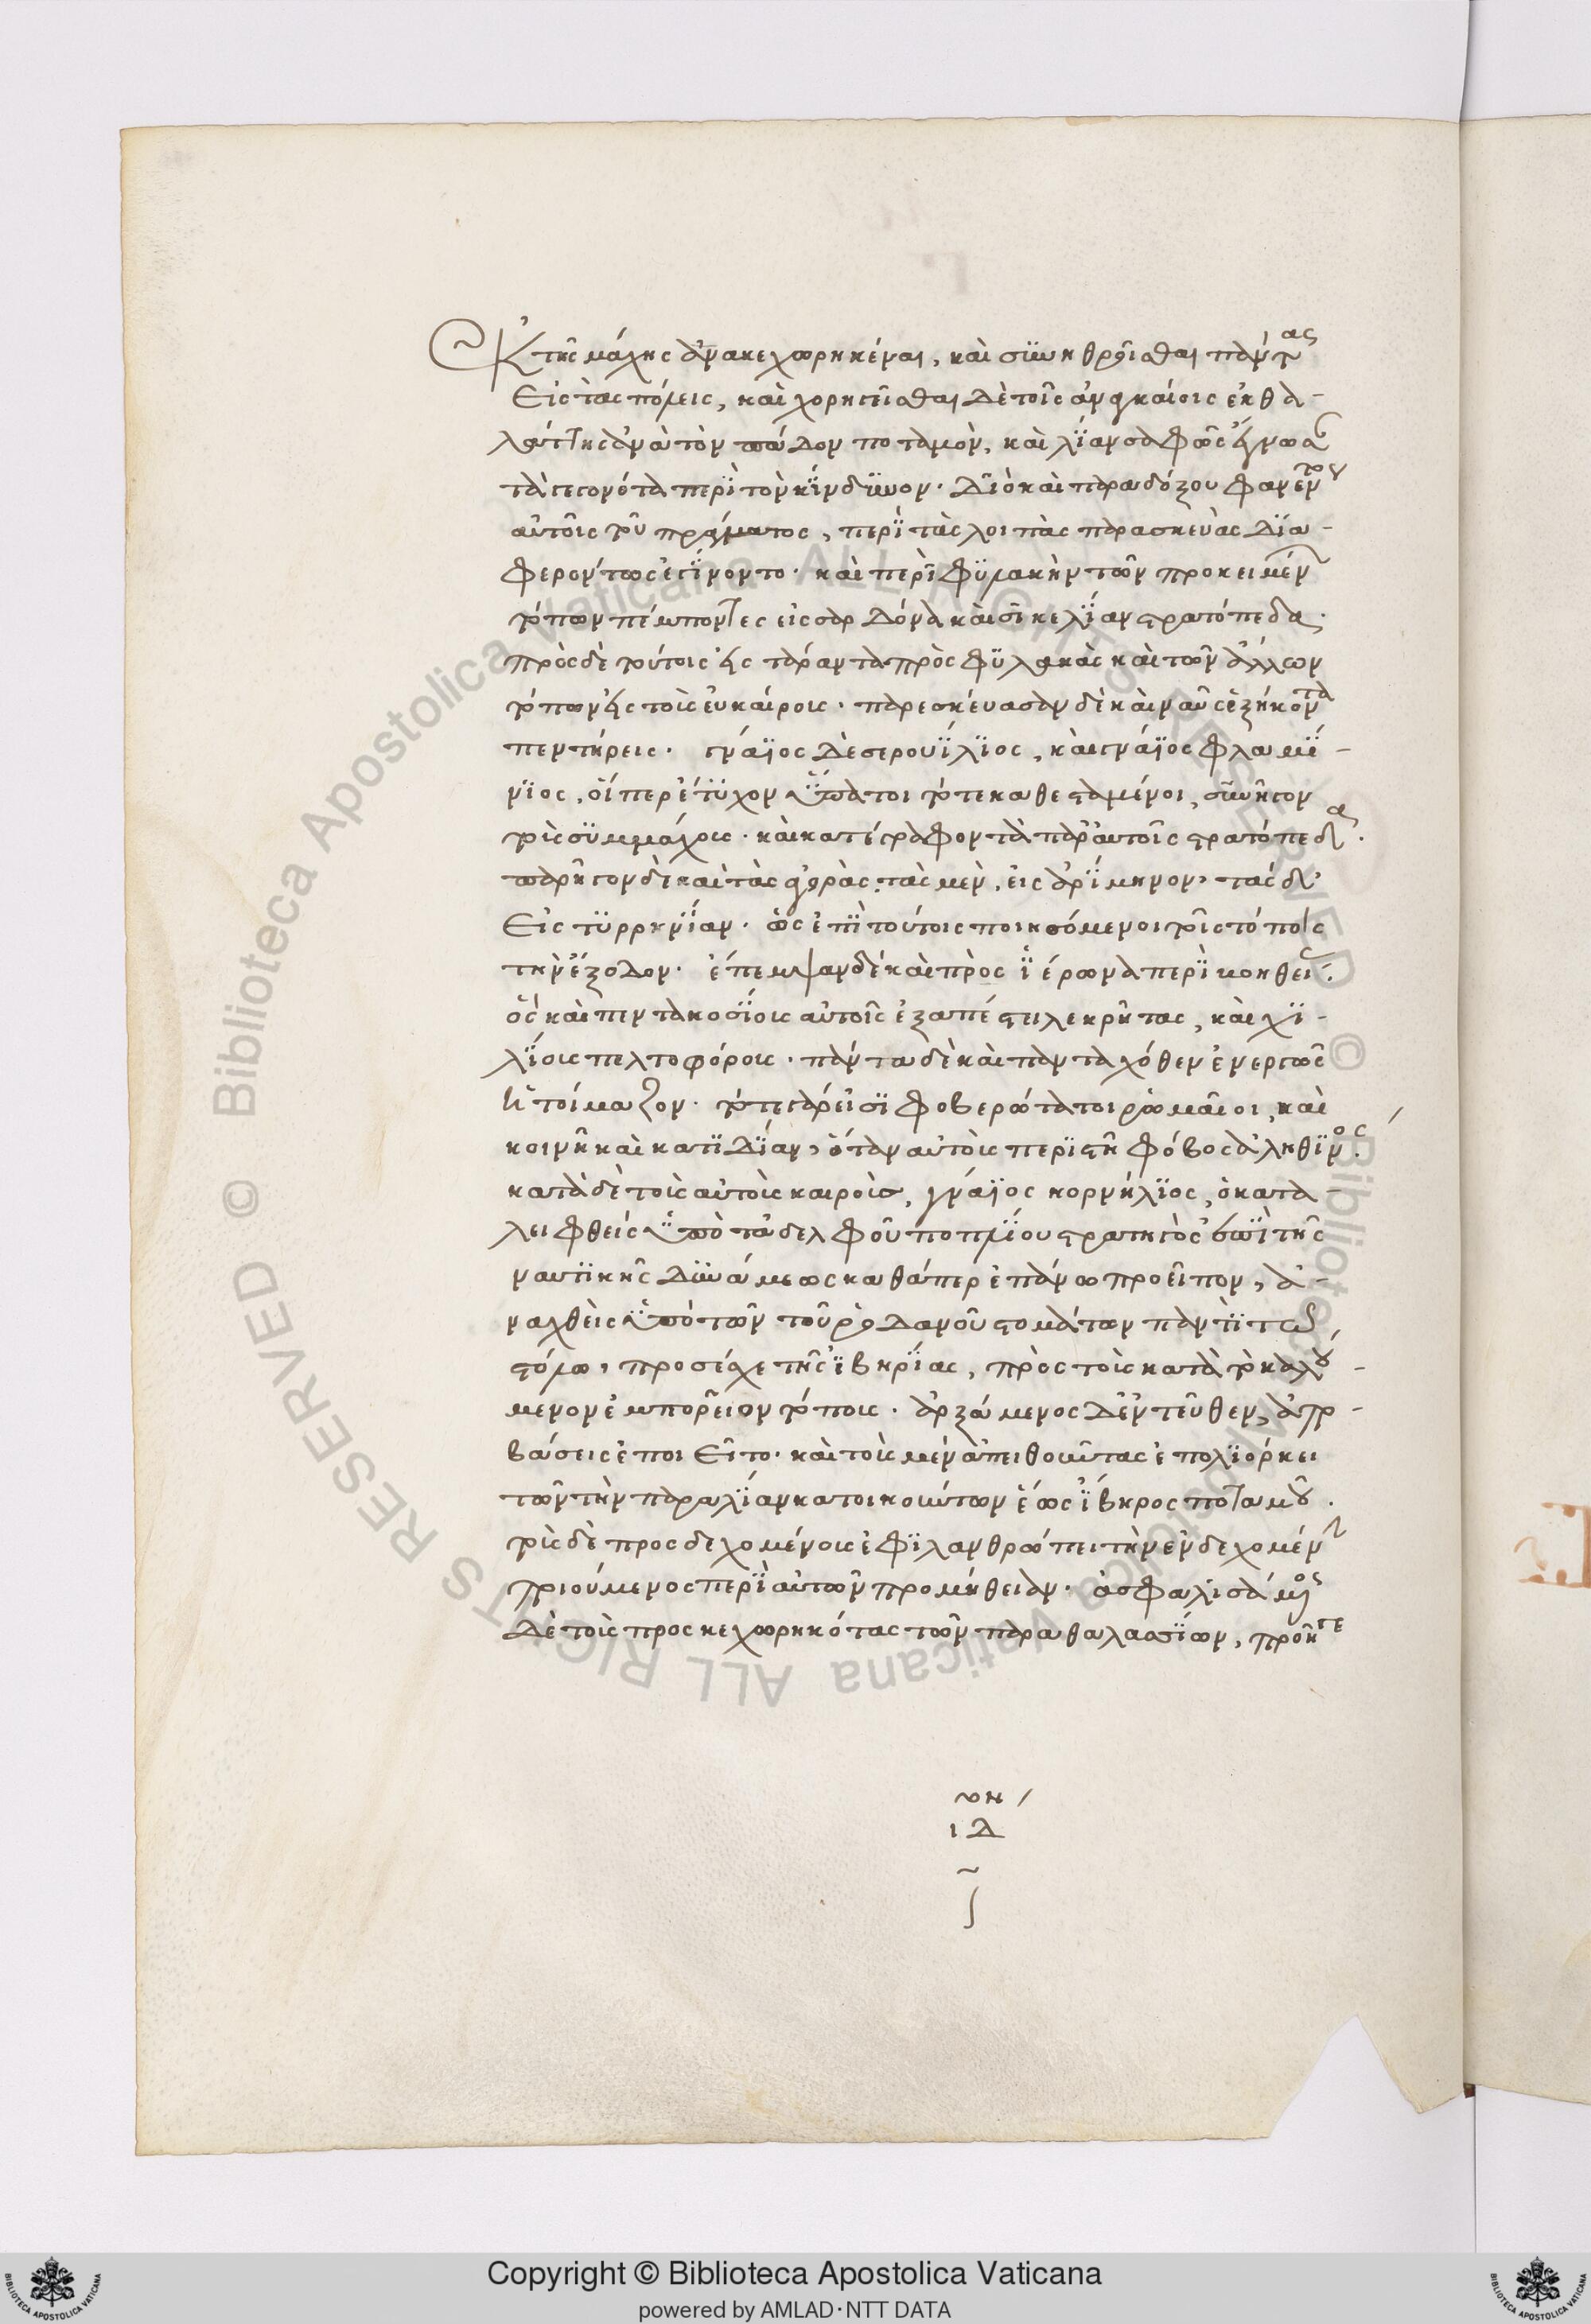 ἐκ τῆς μάχης ἀνακεχωρηκέναι, καὶ συνηθροῖσθαι πάντας
εἰς τὰς πόλεις, καὶ χορηγεῖσθαι δὲ τοῖς ἀναγκαίοις ἐκ θα-
λάττης ἀνὰ τὸν πάδον ποταμὸν, καὶ λίαν σαφῶς ἔγνωσαν
τὰ γεγονότα περὶ τὸν κίνδυνον. διὸ καὶ παραδόξου φανέντος
αὐτοῖς τοῦ πράγματος, περὶ τὰς λοιπὰς παρασκευὰς δια-
φερόντως ἐγίνοντο. καὶ περὶ φυλακὴν τῶν προκειμένων
τόπων πέμποντες εἰς σαρδόνα καὶ σικελίαν στρατόπεδα.
πρὸς δὲ τούτοις εἰς τάραντα προφυλακὰς καὶ τῶν ἄλλων
τόπων εἰς τοὺς εὐκαίρους. παρεσκεύασαν δὲ καὶ ναῦς ἑξήκοντα
πεντήρεις. γνάϊος δὲ σερουΐλιος, καὶ γνάϊος φλαμί-
νιος, οἵπερ ἔτυχον ὕπατοι τότε καθεσταμένοι, συνῆγον
τοὺς συμμάχους. καὶ κατέγραφον τὰ παρ' αὐτοῖς στρατόπεδα.
παρῆγον δὲ καὶ τὰς ἀγορὰς. τὰς μὲν, εἰς ἀρίμηνον, τὰς δ'
εἰς τυρρηνίαν. ὡς ἐπὶ τούτοις ποιησόμενοι τοῖς τόποις
τὴν ἔξοδον. ἔπεμψαν δὲ καὶ πρὸς ἱέρωνα περὶ βοηθείας.
ὃς καὶ πεντακοσίους αὐτοῖς ἐξαπέστειλε κρῆτας, καὶ χι-
λίους πελτοφόρους. πάντα δὲ καὶ πανταχόθεν ἐνεργῶς
ἡτοίμαζον. τότε γάρ εἰσι φοβερώτατοι ῥωμαῖοι, καὶ
κοινῇ καὶ κατ' ἰδίαν, ὅταν αὐτοὺς περιστῇ φόβος ἀληθινός.
κατὰ δὲ τοὺς αὐτοὺς καιροὺς, γνάϊος κορνήλιος, ὁ κατα-
λειφθεὶς ὑπὸ τἀδελφοῦ ποπλίου στρατηγὸς ἐπὶ τῆς
ναυτικῆς δυνάμεως καθάπερ ἐπάνω προεῖπον, ἀ-
ναχθεὶς ἀπὸ τῶν τοῦ ῥοδανοῦ στομάτων παντὶ τῶ
στόλω, προσέσχε τῆς ἰβηρίας, πρὸς τοὺς κατὰ τὸ καλού-
μενον ἐμπορεῖον τόπους. ἀρξάμενος δ' ἐντεῦθεν, ἀπο-
βάσεις ἐποιεῖτο. καὶ τοὺς μὲν ἀπειθοῦντας ἐπολιόρκει
τῶν τὴν παραλίαν κατοικούντων ἕως ἴβηρος ποταμοῦ.
τοὺς δὲ προσδεχομένους ἐφιλανθρώπει τὴν ἐνδεχομένην
ποιούμενος περὶ αὐτῶν προμήθειαν. ἀσφαλισάμενος
δὲ τοὺς προσκεχωρηκότας τῶν παραθαλασσίων, προῆγε